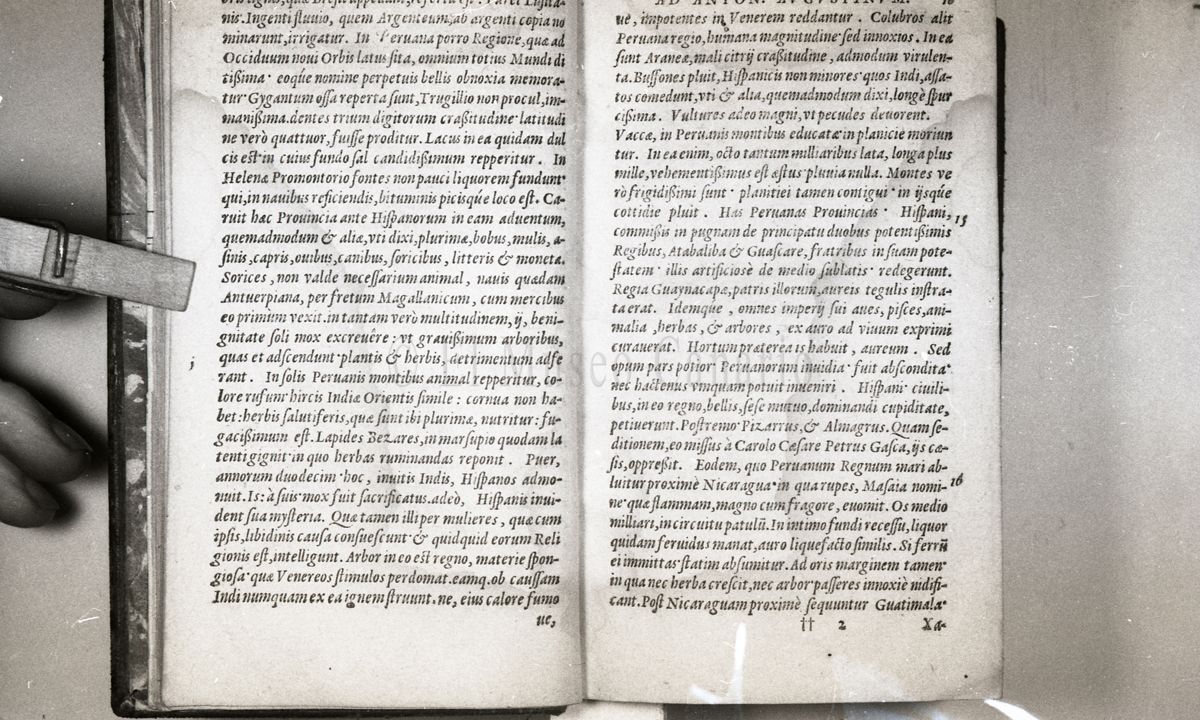 nis. Ingenti fluuio, quem Argenteum, ab argenti copia no
minarunt, irrigatur. In Peruana porro Regione, quæ ad
Occiduum noui Orbis latus sita, omnium totius Mundi di
tißima· eoque nomine perpetuis bellis obnoxia memora-
tur· Gygantum ossa reperta sunt, Trugillio non procul, im-
manißima. dentes trium digitorum craßitudine· latitudi
ne verò quattuor, fuisse proditur. Lacus in ea quidam dul
cis est· in cuius fundo sal candidißimum repperitur. In
Helenæ Promontorio fontes non pauci liquorem fundunt·
qui, in nauibus reficiendis, bituminis picisque loco est. Ca-
ruit hæc Prouincia ante Hispanorum in eam aduentum,
quemadmodum & aliæ, vti dixi, plurimæ, bobus, mulis, a-
sinis, capris, ouibus, canibus, soricibus, litteris & moneta.
Sorices, non valde necessarium animal, nauis quædam
Antuerpiana, per fretum Magallanicum, cum mercibus
eo primum vexit. in tantam verò multitudinem, ij, beni-
gnitate soli mox excreuêre: vt grauißimum arboribus,
quas et adscendunt· plantis & herbis, detrimentum adfe
rant. In solis Peruanis montibus animal repperitur, co-
lore rufum· hircis Indiæ Orientis simile: cornua non ha-
bet: herbis salutiferis, quæ sunt ibi plurimæ, nutritur: fu-
gacißimum est. Lapides Bezares, in marsupio quodam la
tenti gignit· in quo herbas ruminandas reponit. Puer,
annorum duodecim· hoc, inuitis Indis, Hispanos admo-
nuit. Is: à suis mox fuit sacrificatus. adeò, Hispanis inui-
dent sua mysteria. Quæ tamen illi per mulieres, quæ cum
ipsis, libidinis causa consuescunt· & quidquid eorum Reli
gionis est, intelligunt. Arbor in eo est regno, materie spon-
giosa· quæ Venereos stimulos perdomat. eamq. ob caussam
Indi numquam ex ea ignem struunt. ne, eius calore fumo
ue,
j
AD ANTON. AVGVSTINVM.
ué, impotentes in Venerem reddantur. Colubros alit
Peruana regio, humana magnitudine· sed innoxios. In ea
sunt Araneæ, mali citrij craßitudine, admodum virulen-
ta. Buffones pluit, Hispanicis non minores· quos Indi, assa-
tos comedunt, vti & alia, quemadmodum dixi, longè spur
cißima. Vultures adeo magni, vt pecudes deuorent.
Vaccæ, in Peruanis montibus educatæ· in planicie moriun
tur. In ea enim, octo tantum milliaribus lata, longa plus
mille, vehementißimus est æstus· pluuia nulla. Montes ve
rò frigidißimi sunt· planitiei tamen contigui· in ijsque
cottidie pluit. Has Peruanas Prouincias· Hispani, 15
commißis in pugnam de principatu duobus potentißimis
Regibus, Atabaliba & Guascare, fratribus in suam pote-
statem· illis artificiosè de medio sublatis· redegerunt.
Regia Guaynacapæ, patris illorum, aureis tegulis instra-
ta erat. Idemque, omnes imperij sui aues, pisces, ani-
malia, herbas, & arbores, ex auro ad viuum exprimi
curauerat. Hortum præterea is habuit, aureum. Sed
opum pars potior· Peruanorum inuidia· fuit abscondita·
nec hactenus vmquam potuit inueniri. Hispani· ciuili-
bus, in eo regno, bellis, sese mutuo, dominandi cupiditate,
petiuerunt. Postremo· Pizarrus, & Almagrus. Quam se-
ditionem, eo missus à Carolo Cæsare Petrus Gasca, ijs cæ-
sis, oppreßit. Eodem, quo Peruanum Regnum mari ab-
luitur· proximè Nicaragua· in qua rupes, Masaia nomi- 16
ne· quæ flammam, magno cum fragore, euomit. Os medio
milliari, in circuitu patulū. In intimo fundi recessu, liquor
quidam feruidus manat, auro liquefacto similis. Si ferrū
ei immittas· statim absumitur. Ad oris marginem tamen·
in qua nec herba crescit, nec arbor· passeres innoxiè nidifi-
cant. Post Nicaraguam proximè sequuntur Guatimala·
†† 2 Xa-